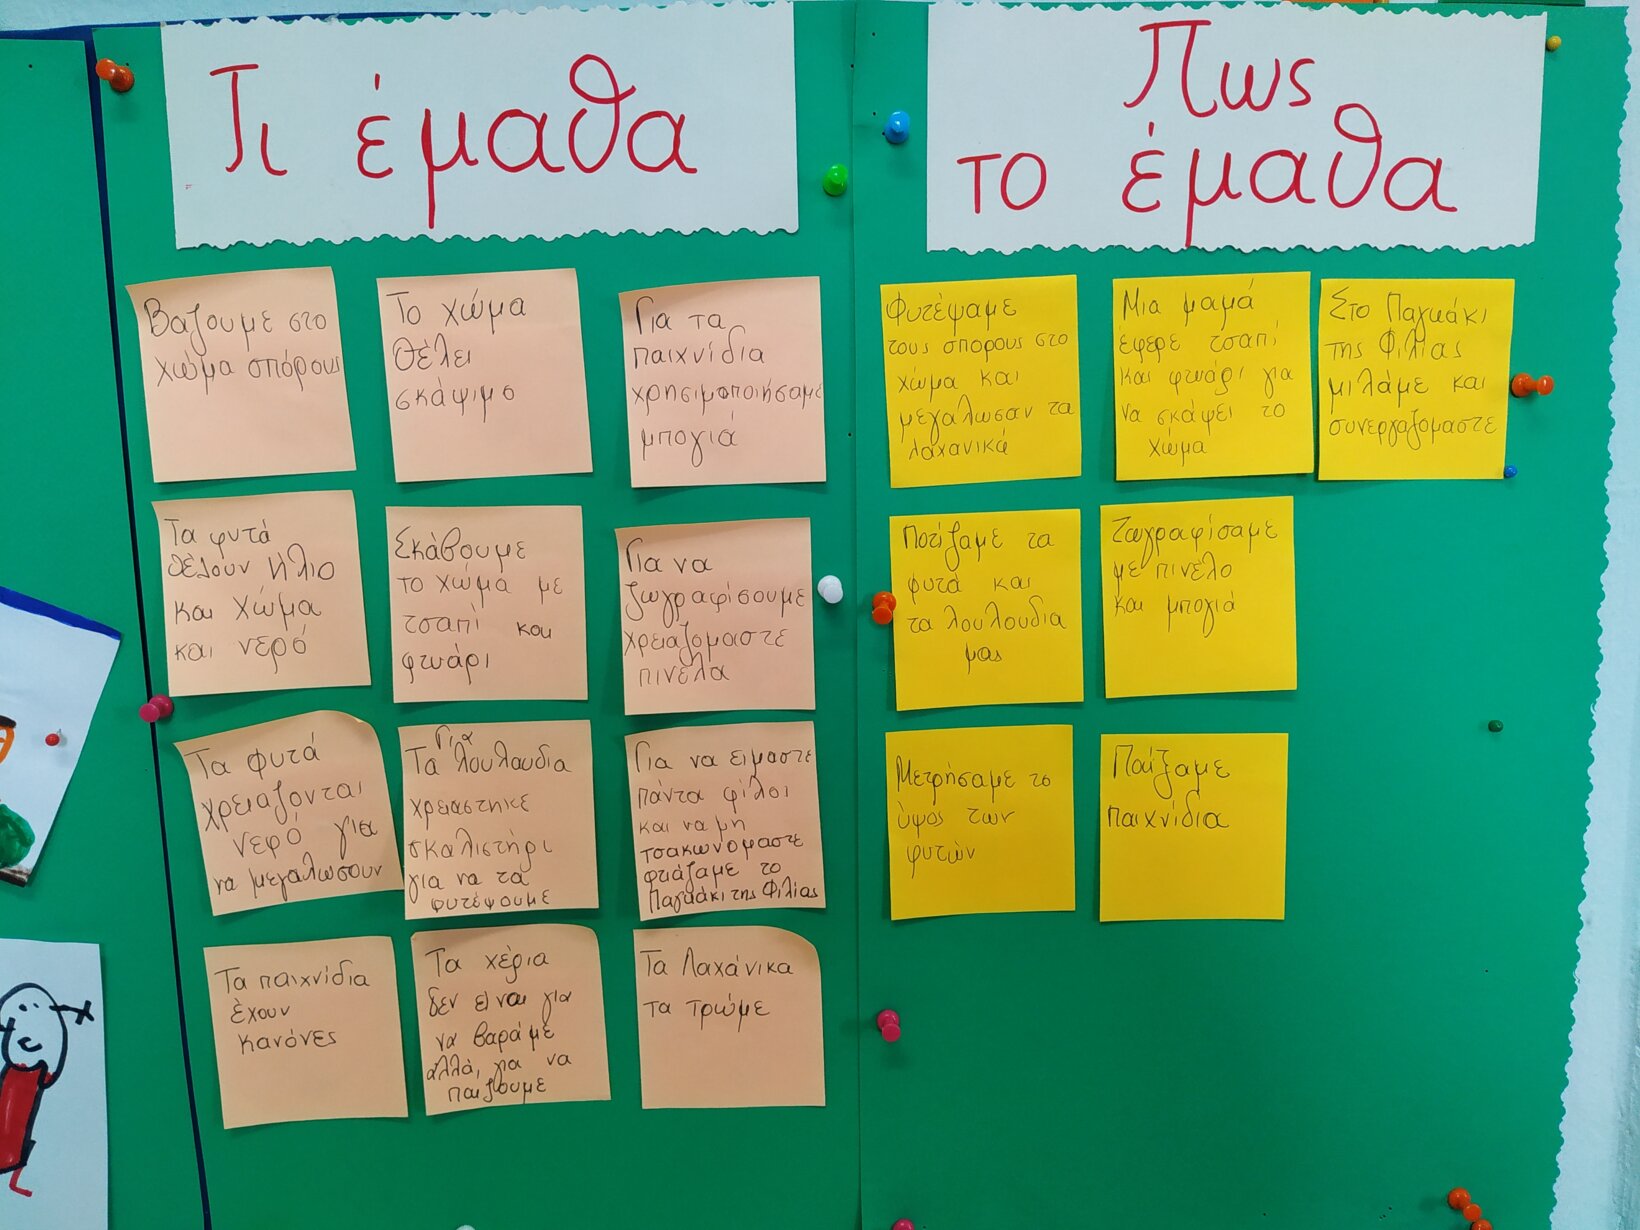 Τι έμαθα
Βαζουμε στο
χώμα σπόρους
Το χώμα
θέλει
σκάψιμο
Για τα
παιχνίδια
χρησιμοποιήσαμε
μπογιά
Τα φυτά
θέλουν ήλιο
και χώμα
και νερό
Σκάβουμε
το χώμα με
τσαπί και
φτυάρι
Για να
ζωγραφίσουμε
χρειαζομαστε
πινέλα
Τα φυτά
χρειαζονται
νερό για
να μεγαλωσουν
Για
Τα λουλουδια
χρειαστηκε
σκαλιστήρι
για να τα
φυτέψουμε
Για να ειμαστε
πάντα φίλοι
και να μη
τσακωνομαστε
φτιάξαμε το
Παγκάκι της Φιλίας
Τα παιχνίδια
έχουν
κανόνες
Τα χέρια
δεν είναι για
να βαράμε
αλλά, για να
παιζουμε
Τα λαχάνικα
τα τρώμε
Πως
το έμαθα
Φυτέψαμε
τους σπορους στο
χώμα και
μεγαλωσαν τα
λαχανικά
Μια μαμά
έφερε τσαπί
και φτυάρι για
να σκάψει το
χώμα
Στο Παγκάκι
της Φιλίας
μιλάμε και
συνεργαζομαστε
Ποτίζαμε τα
φυτά και
τα λουλουδια
μας
Ζωγραφίσαμε
με πινέλο
και μπογιά
Μετρήσαμε το
ύψος των
φυτών
Παίξαμε
παιχνίδια